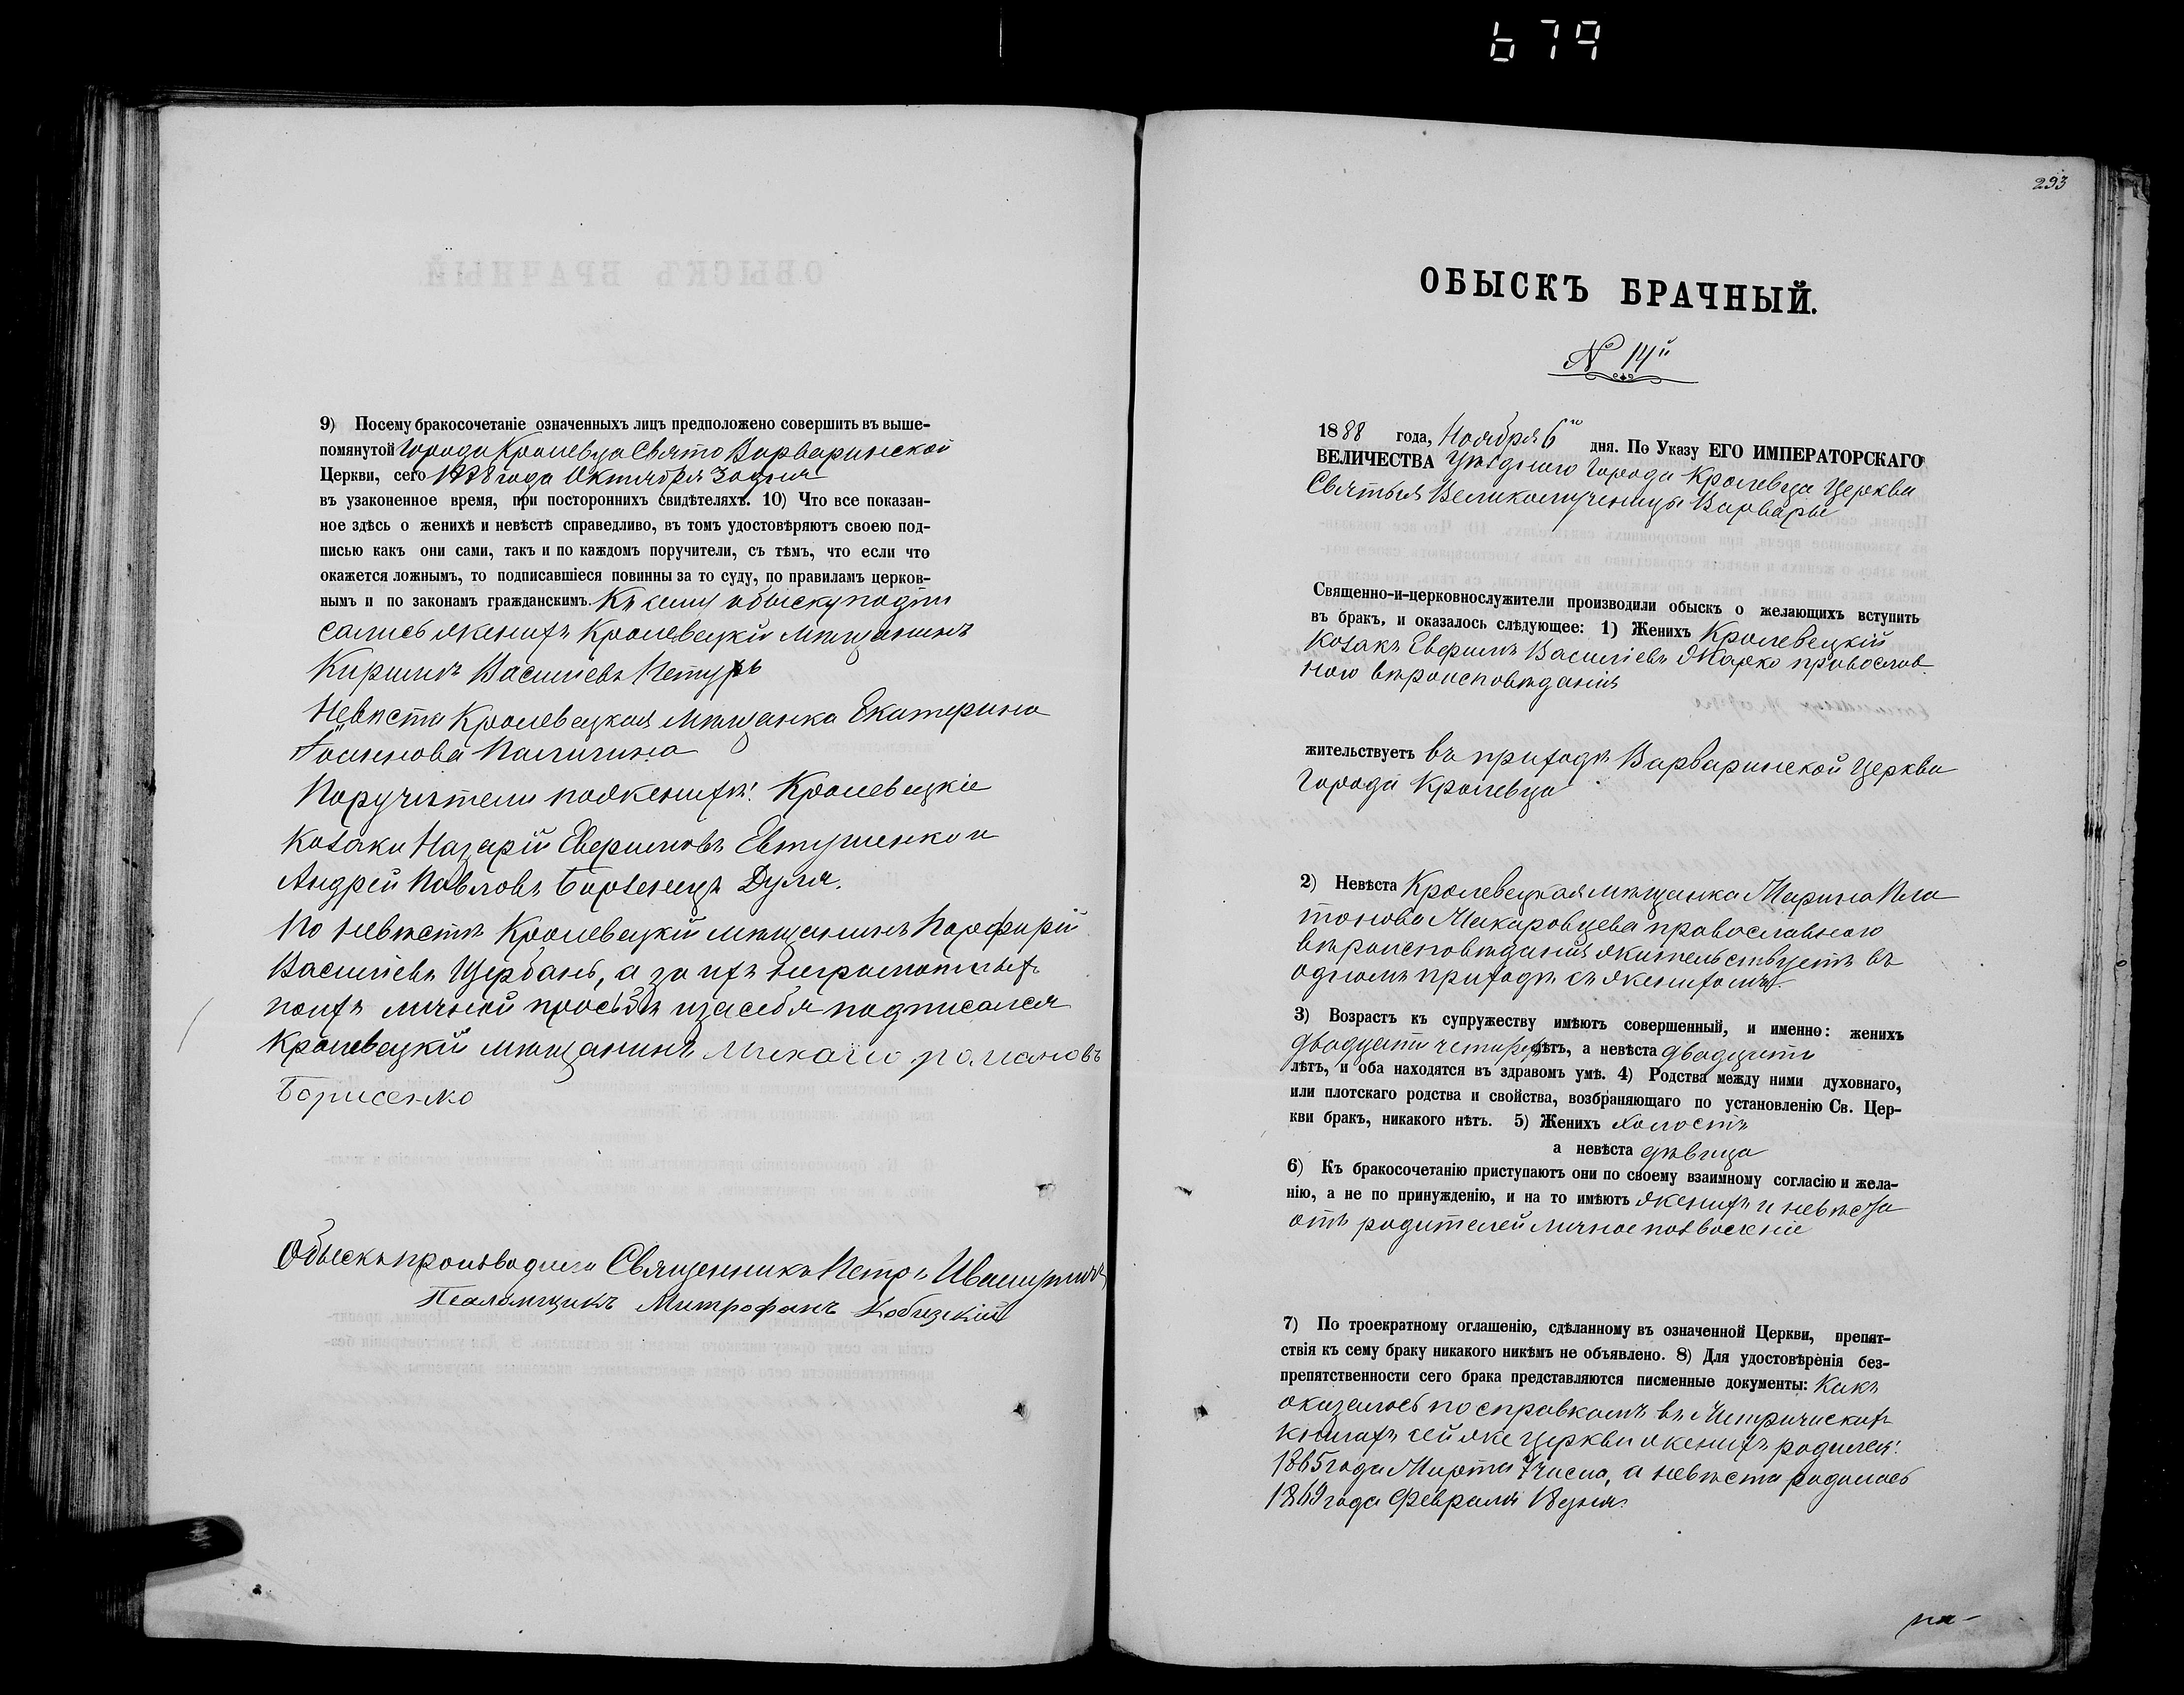 679
9) Посему бракосочетаніе означенныхъ лицъ предположено совершить въ выше-
помянутой Города Кролевца Свято Варваринской
Церкви, сего 1888 года Октября 30 дня
въ узаконенное время, при постороннихъ свидѣтеляхъ. 10) Что все показан-
ное здѣсь о женихѣ и невѣстѣ справедливо, въ томъ удостовѣряютъ своею под-
писью какъ они сами, такъ и по каждомъ поручители, съ тѣмъ, что если что
окажется ложнымъ, то подписавшіеся повинны за то суду, по правиламъ церков-
нымъ и по законамъ гражданскимъ. Къ сему обыску подпи
сались женихъ Кролевецкій мѣщанинъ
Кирилъ Васильевъ Петуръ
Невѣста Кролевецкая мѣщанка Екатерина
Поручители по женихѣ: Кролевецкіе
козаки Назарій Евфимовъ Евтушенко и
Андрей Павловъ Борзенецъ Дуля.
По невѣстѣ Кролевецкій мѣщанинъ Порфирій
Васильевъ Щербань, а за ихъ неграмотныхъ
по ихъ личной просьбѣ и за себя подписался
Кролевецкій мѣщанинъ Михаило Романовъ
Борисенко
Обыскъ производили Священникъ Петръ
Псаломщикъ Митрофанъ
293
ОБЫСКЪ БРАЧНЫЙ.
№ 14й
1888 года, Ноября 6го дня. По Указу ЕГО ИМПЕРАТОРСКАГО
ВЕЛИЧЕСТВА Уѣзднаго Города Кролевца Церкви
Святыя Великомученицы Варвары
Священно-и-церковнослужители производили обыскъ о желающихъ вступить
въ бракъ, и оказалось слѣдующее: 1) Женихъ Кролевецкій
козакъ Евфимъ Васильевъ Жарко православ-
наго вѣроисповѣданія
жительствуетъ въ приходѣ Варваринской Церкви
Города Кролевца
2) Невѣста Кролевецкая мѣщанка Марина Пла
тонова Макаровцева православнаго
вѣроисповѣданія жительствуетъ въ
одномъ приходѣ съ женихомъ.
3) Возрастъ къ супружеству имѣютъ совершенный, и именно: женихъ
двадцати четырехъ лѣтъ, а невѣста двадцати
лѣтъ, и оба находятся въ здравомъ умѣ. 4) Родства между ними духовнаго,
или плотскаго родства и свойства, возбраняющаго по установленію Св. Цер-
кви бракъ, никакого нѣтъ. 5) Женихъ холостъ
а невѣста дѣвица
6) Къ бракосочетанію приступаютъ они по своему взаимному согласію и жела-
нію, а не по принужденію, и на то имѣютъ женихъ и невѣста
отъ родителей личное позволеніе
7) По троекратному оглашенію, сдѣланному въ означенной Церкви, препят-
ствія къ сему браку никакого никѣмъ не объявлено. 8) Для удостовѣренія без-
препятственности сего брака представляются писменные документы: Какъ
оказалось по справкамъ въ Метрическихъ
книгахъ сей же Церкви женихъ родился:
1865 года Марта 7 числа, а невѣста родилась
1869 года Февраля 18 дня